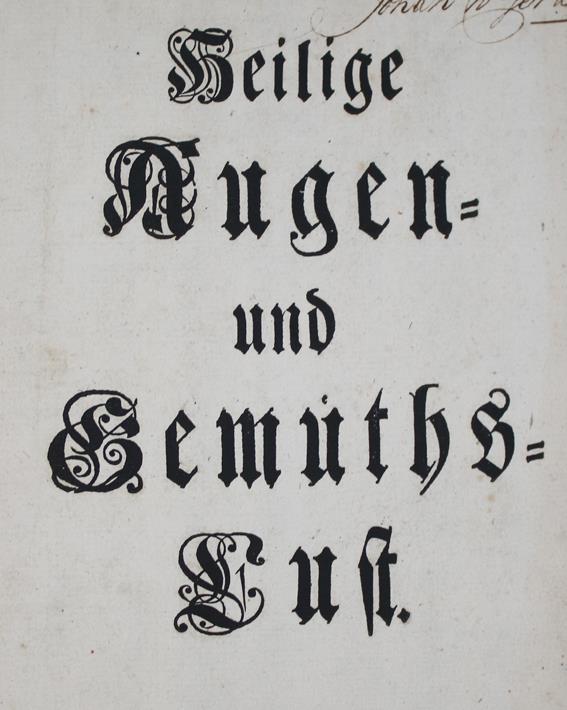 Heilige
Augen-
und
Gemüths-
Lust.